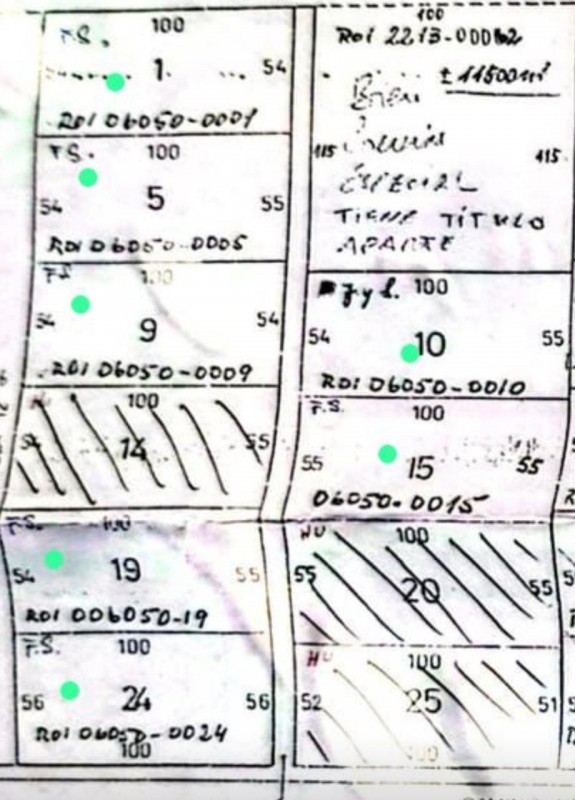 F.S. 100
1. 54
ROI 06050-0001
F.S. 100
54 5 55
ROI 06050-0005
F.S 100
54 9 54
ROI 06050-0009
HU 100
54 14 55
F.S. 100
54 19 55
ROI 006050-19
F.S. 100
56 24 56
ROI 06050-0024
100
100
Roi 2213-00062
± 11500m²
415 415.
ESPECIAL
TIENE TÍTULO
APARTE
J y L. 100
54 10 55
ROI 06050-0010
F.S. 100
55 15 55
06050-0015
HU 100
55 20 55
HU 100
52 25 51
100